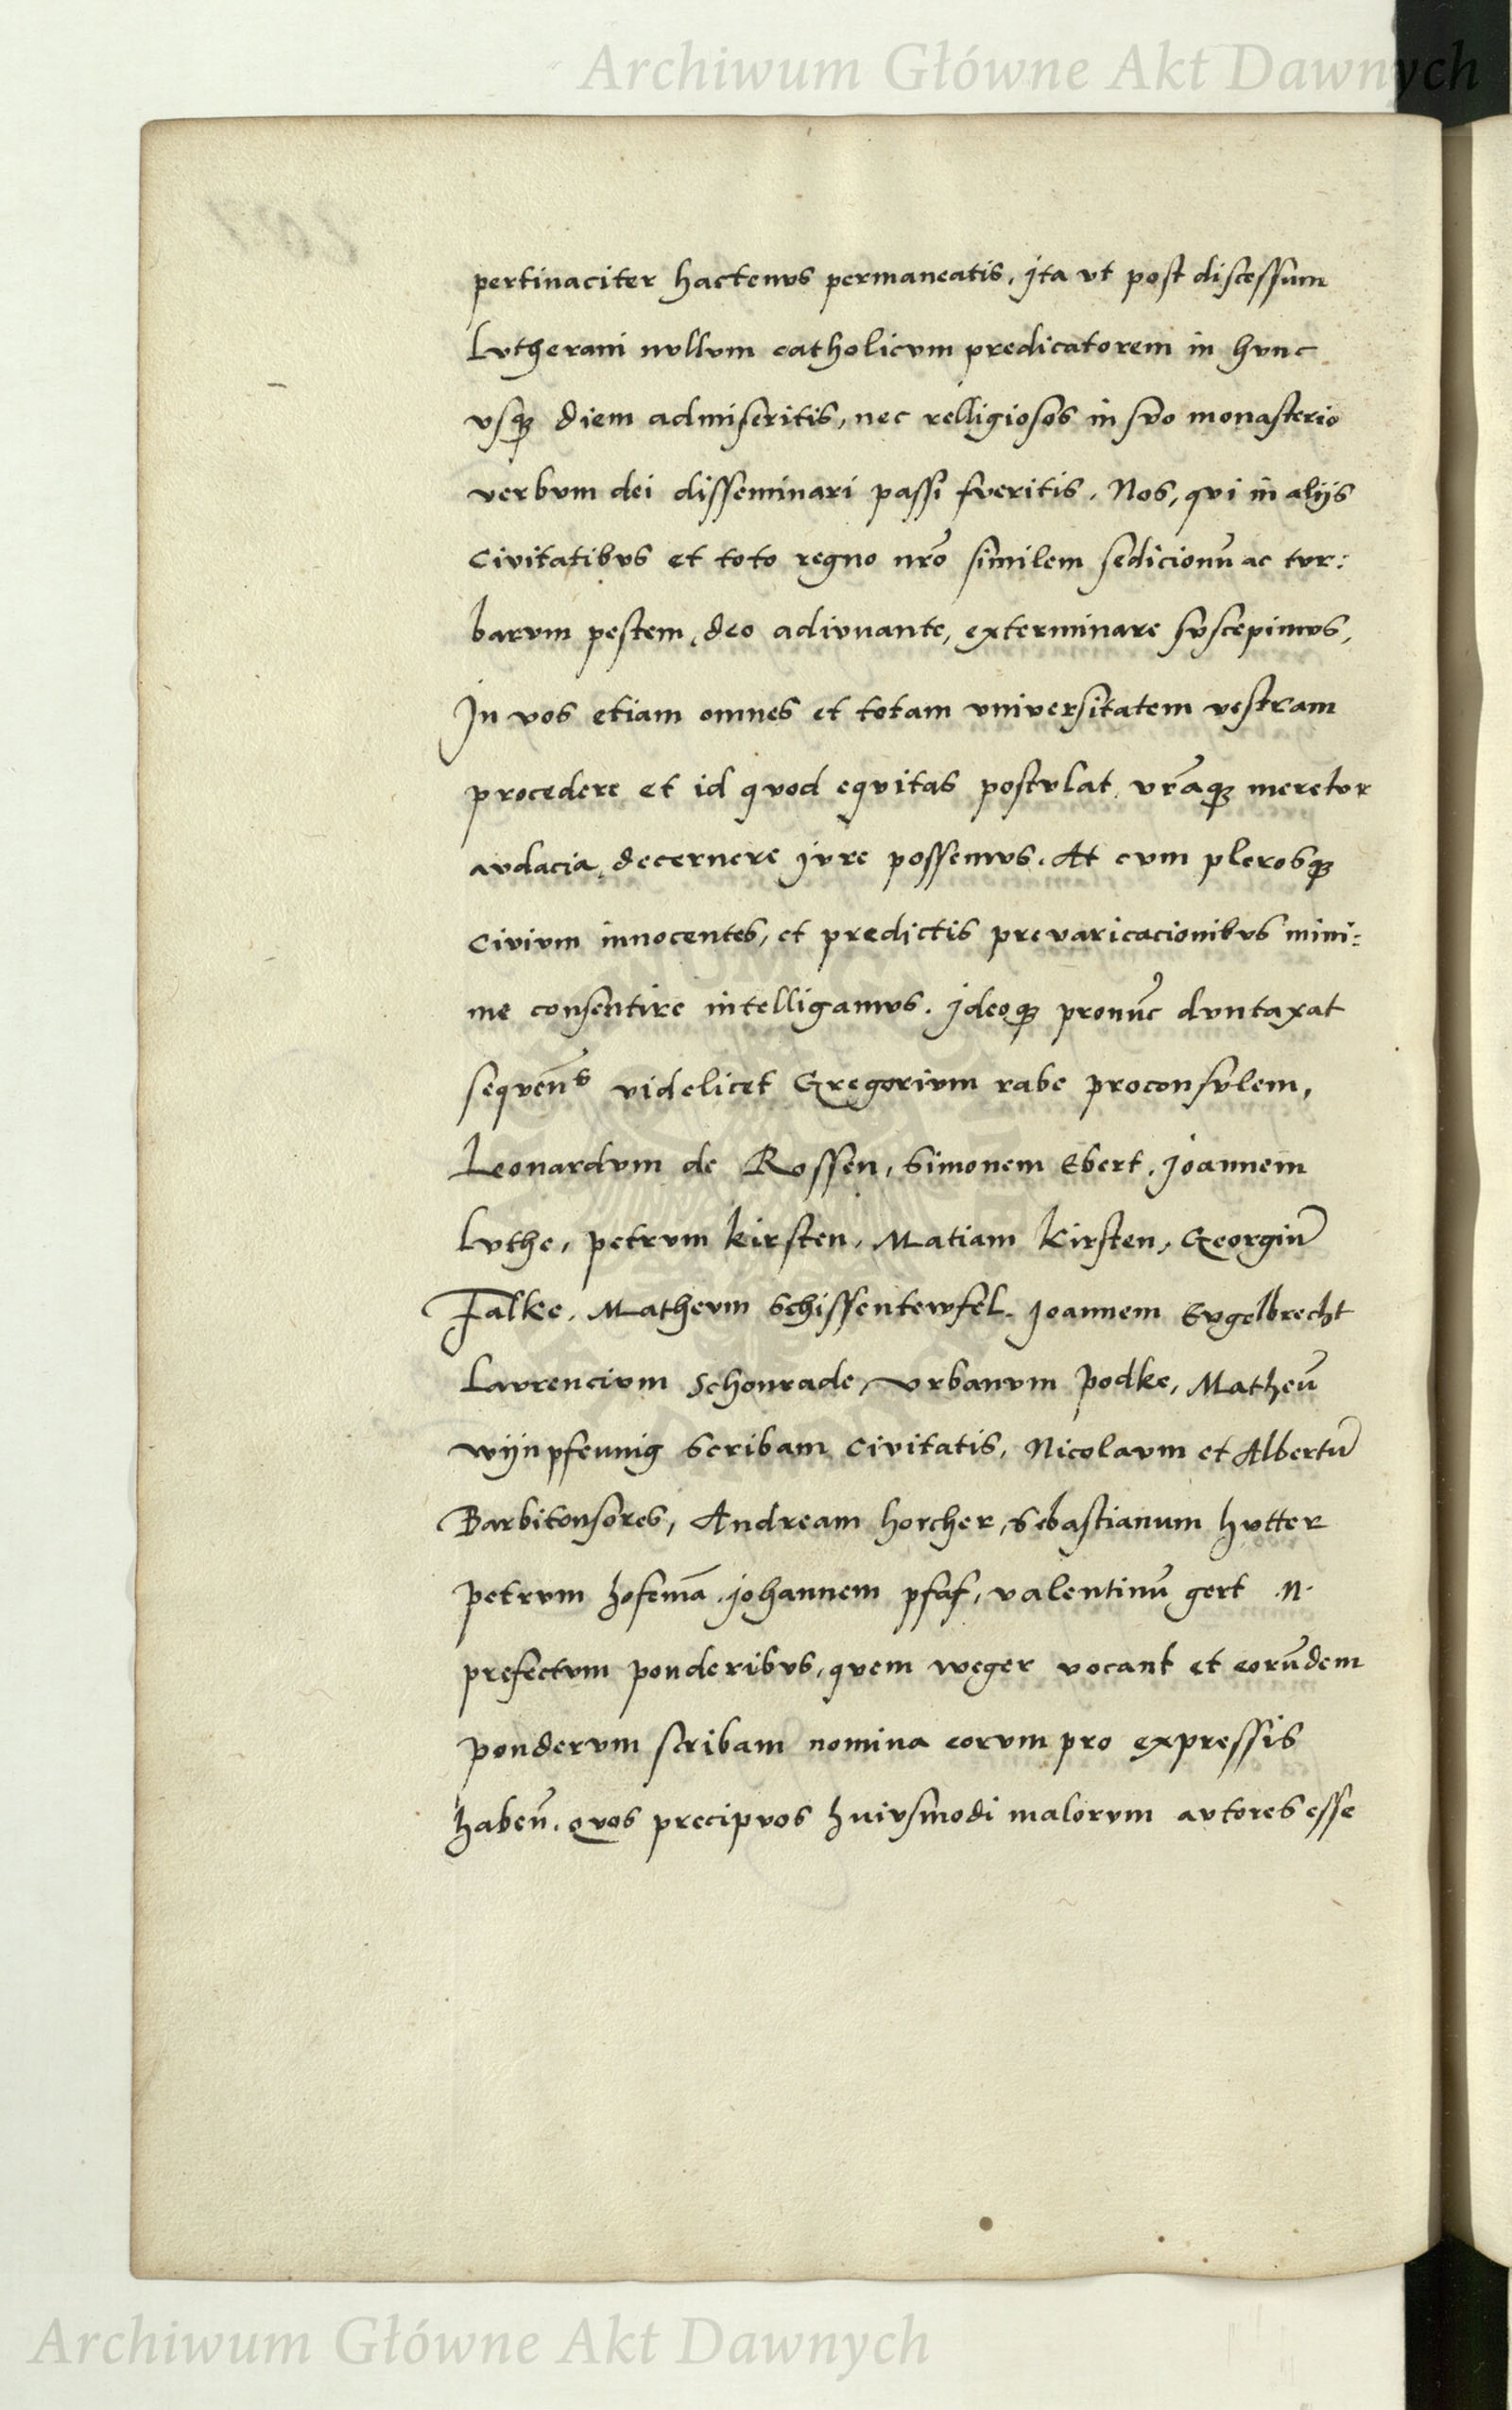 Archiwum Główne Akt Dawnych
pertinaciter hactenvs permaneatis, jta vt post discessum
Lvtherani nvllvm catholicvm predicatorem in hvnc
vsqȝ diem admiseritis, nec relligiosos in svo monasterio
verbvm dei disseminari passi fveritis. Nos, qvi in alijs
Civitatibvs et toto regno nr̃o similem sedicionũ ac tvr:
barvm pestem, deo adivvante, exterminare svscepimvs,
Jn vos etiam omnes et totam vniversitatem vestram
procedere et id qvod eqvitas postvlat, vr̃aqȝ meretvr
avdacia, decernere jvre possemvs. At cvm plerosqȝ
Civivm innocentes, et predictis prevaricacionibvs mini:
me consentire intelligamvs. jdeoqȝ pronũc dvntaxat
seqven̄s videlicet Gregorivm rabe proconsvlem,
Leonardvm de Rossen, Simonem Ebert, Joannem
Lvthe, petrvm kirsten, Matiam Kirsten, Georgiũ
Falke, Mathevm Schissentewfel, Joannem Engelbrecht
Lavrencivm Schonrade, vrbanvm podke, Matheũ
wijnpfennig Scribam Civitatis, Nicolavm et Albertũ
Barbitonsores, Andream horcher, Sebastianum hvtter
petrvm hofemã, johannem pfaf, valentinũ gert .N.
prefectvm ponderibvs, qvem weger vocant et eorũdem
pondervm scribam nomina eorvm pro expressis
habeñ. qvos precipvos hvivsmodi malorvm avtores esse
Archiwum Główne Akt Dawnych